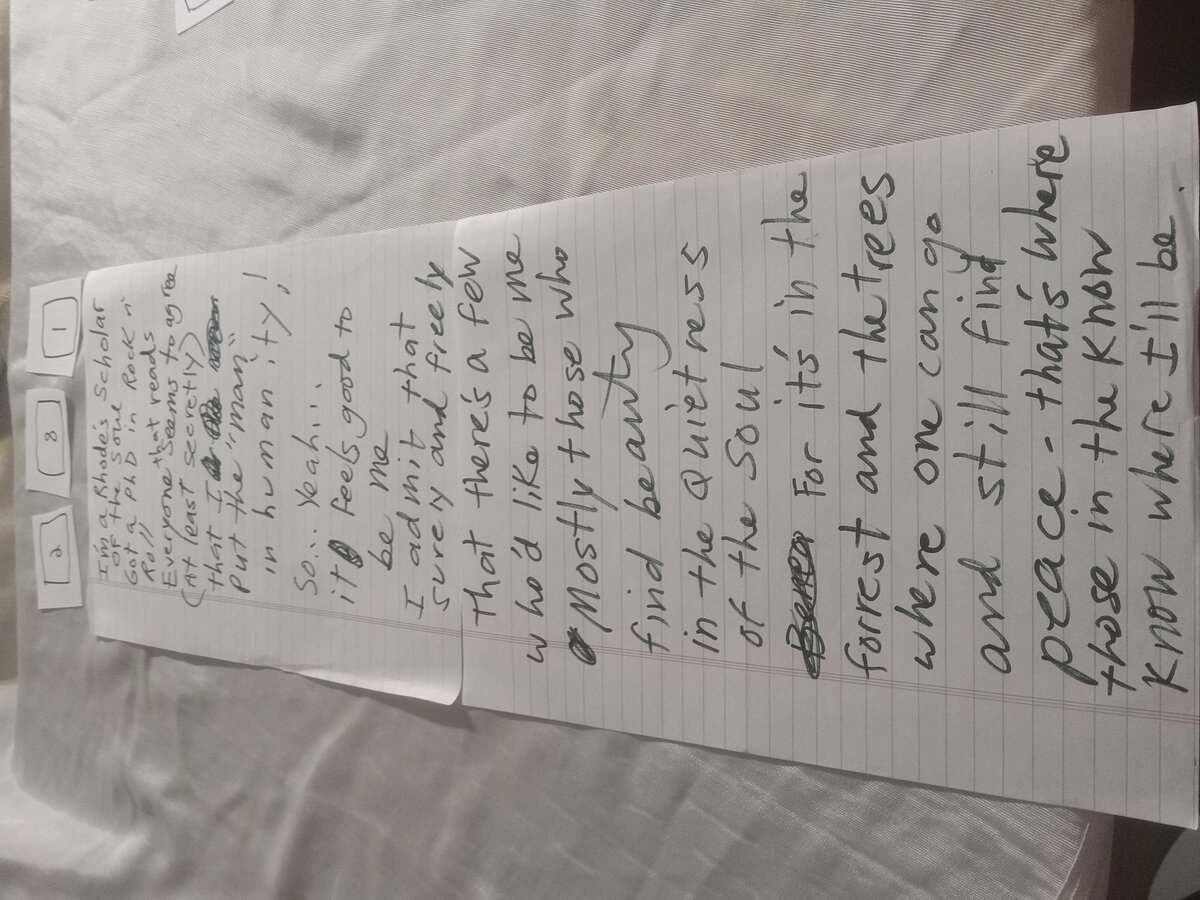 2
3
1
I'm a Rhode's Scholar
of the soul
Got a PhD in Rock n'
Roll that reads
Everyone seems to agree
(At least secretly)
that I
put the "man"
in humanity!
So... Yeah...
it feels good to
be me
I admit that
surely and freely
that there's a few
who'd like to be me
Mostly those who
find beauty
in the Quietness
of the Soul
For it's in the
forrest and the trees
where one can go
and still find
peace - that's where
those in the Know
Know where I'll be.